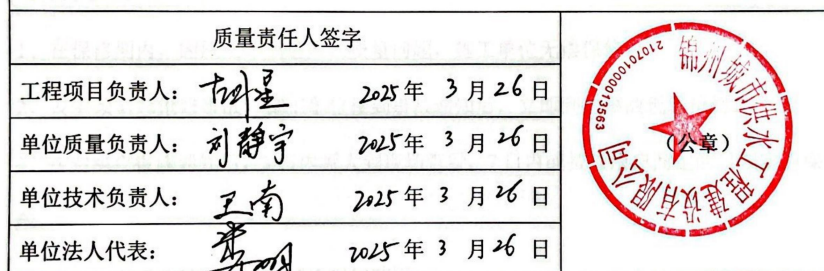 质量责任人签字
工程项目负责人： 2025年 3月26日
单位质量负责人： 刘静宇 2025年 3月26日
单位技术负责人： 王南 2025年 3月26日
单位法人代表： 2025年 3月26日
锦州城市供水工程建设有限公司
2107010000113563
（公章）